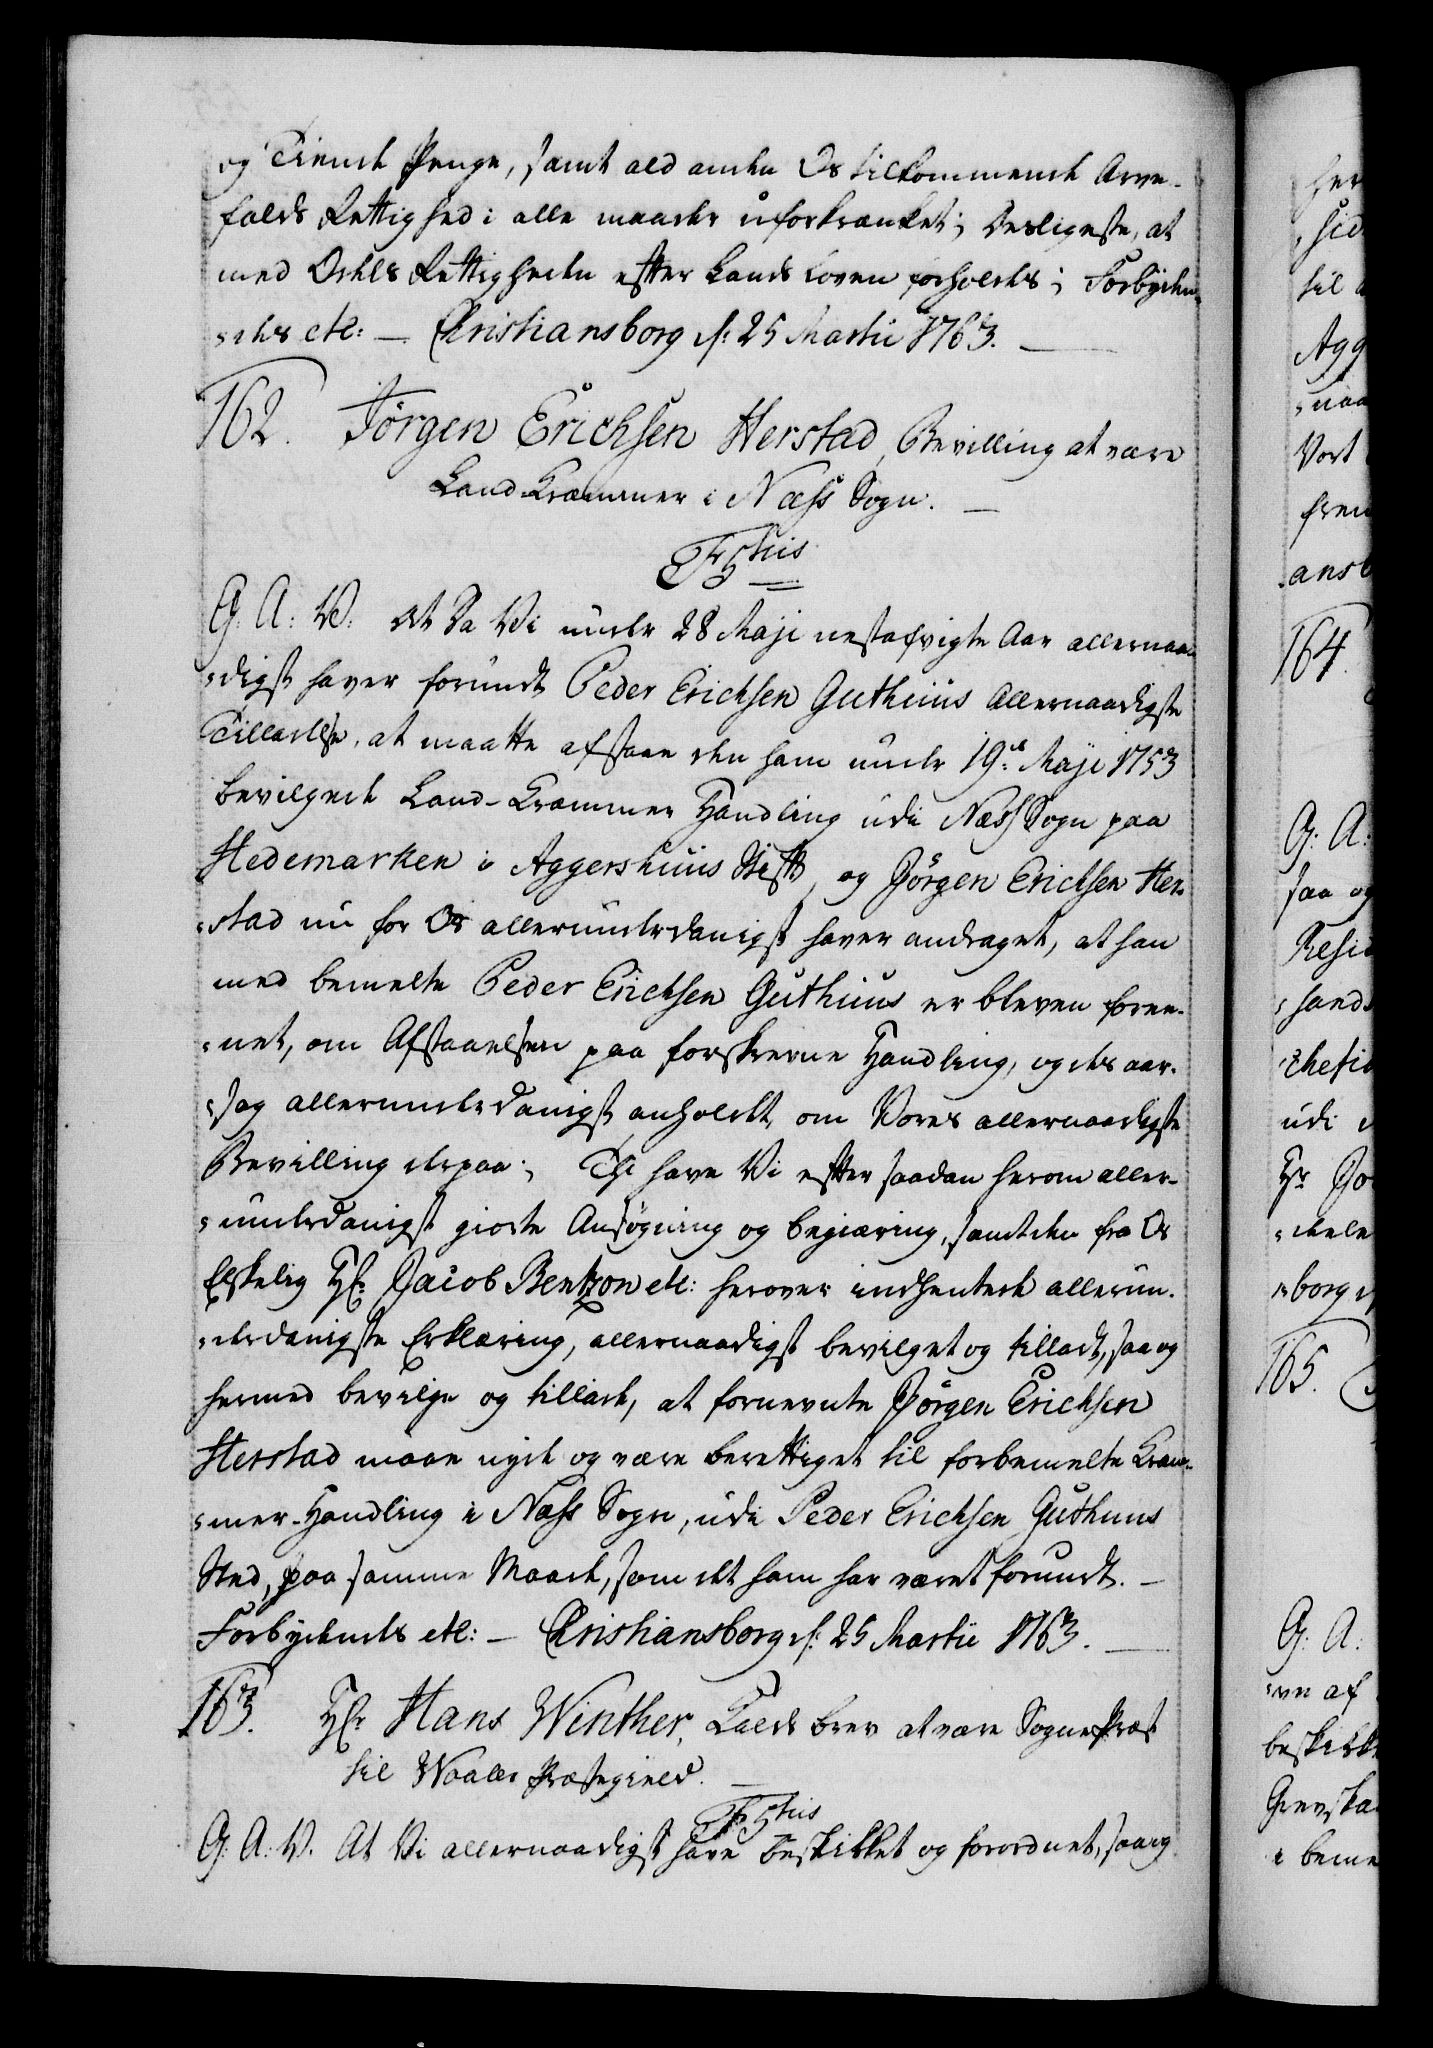 og Tiende Penge, samt ald anden Os tilkommende Arve-
falds Rettighed i alle maader uforkrænket; Desligeste, at
med Odels Rettigheden efter Lands Loven forholdes; Forbyden-
-des etc: — Christiansborg d: 25 Martii 1763. —
162. Jörgen Erichsen Herstad, Bevilling at være
Land-Kræmmer i Næss Sogn. —
F5tus
G: A: V: At Da Vi under 28 Maji nestafvigte Aar allernaa-
-digst haver forundt Peder Erichsen Guthuus Allernaadigste
Tilladelse, at maatte afstaae den ham under 19de Maji 1753
bevilgede Land-Kræmmer Handling udi Næss Sogn paa
Hedemarken i Aggershuus Stift, og Jörgen Erichsen Her-
-stad nu for Os allerunderdanigst haver andraget, at han
med bemelte Peder Erichsen Guthuus er bleven foree-
-net, om Afstaaelsen paa forskrevne Handling, og des aar-
-sag allerunderdanigst anholdet om Vores allernaadigste
Bevilling derpaa; Thi have Vi efter saadan herom aller-
-underdanigst giorte Ansøgning og begiæring, samt den fra Os
Elskelig Hr: Jacob Bentzon etc: herover indhentede allerun-
-derdanigste Erklæring, allernaadigst bevilget og tilladt, saa og
hermed bevilge og tillade, at fornevnte Jörgen Erichsen
Herstad maae nyde og være berettiget til forbemelte Kræm-
-mer-Handling i Næss Sogn, udi Peder Erichsen Guthuus
Sted, paa samme Maade, som det ham har været forundt. —
Forbydendes etc: — Christiansborg d: 25 Martii 1763. —
163. Hr: Hans Winther, Kalds brev at være Sogne Præst
til Waaler Præstegield. —
F5tus
G: A: V. At Vi allernaadigst have beskikket og forordnet, saa og
her
sid
til
Agg
-naa
Vort
frem
-ansb
164.
G: A:
saa og
Resi
-hands
udi
Hr Jo
-borg
165.
G: A:
-ve af
beskikk
Grevska
i beme